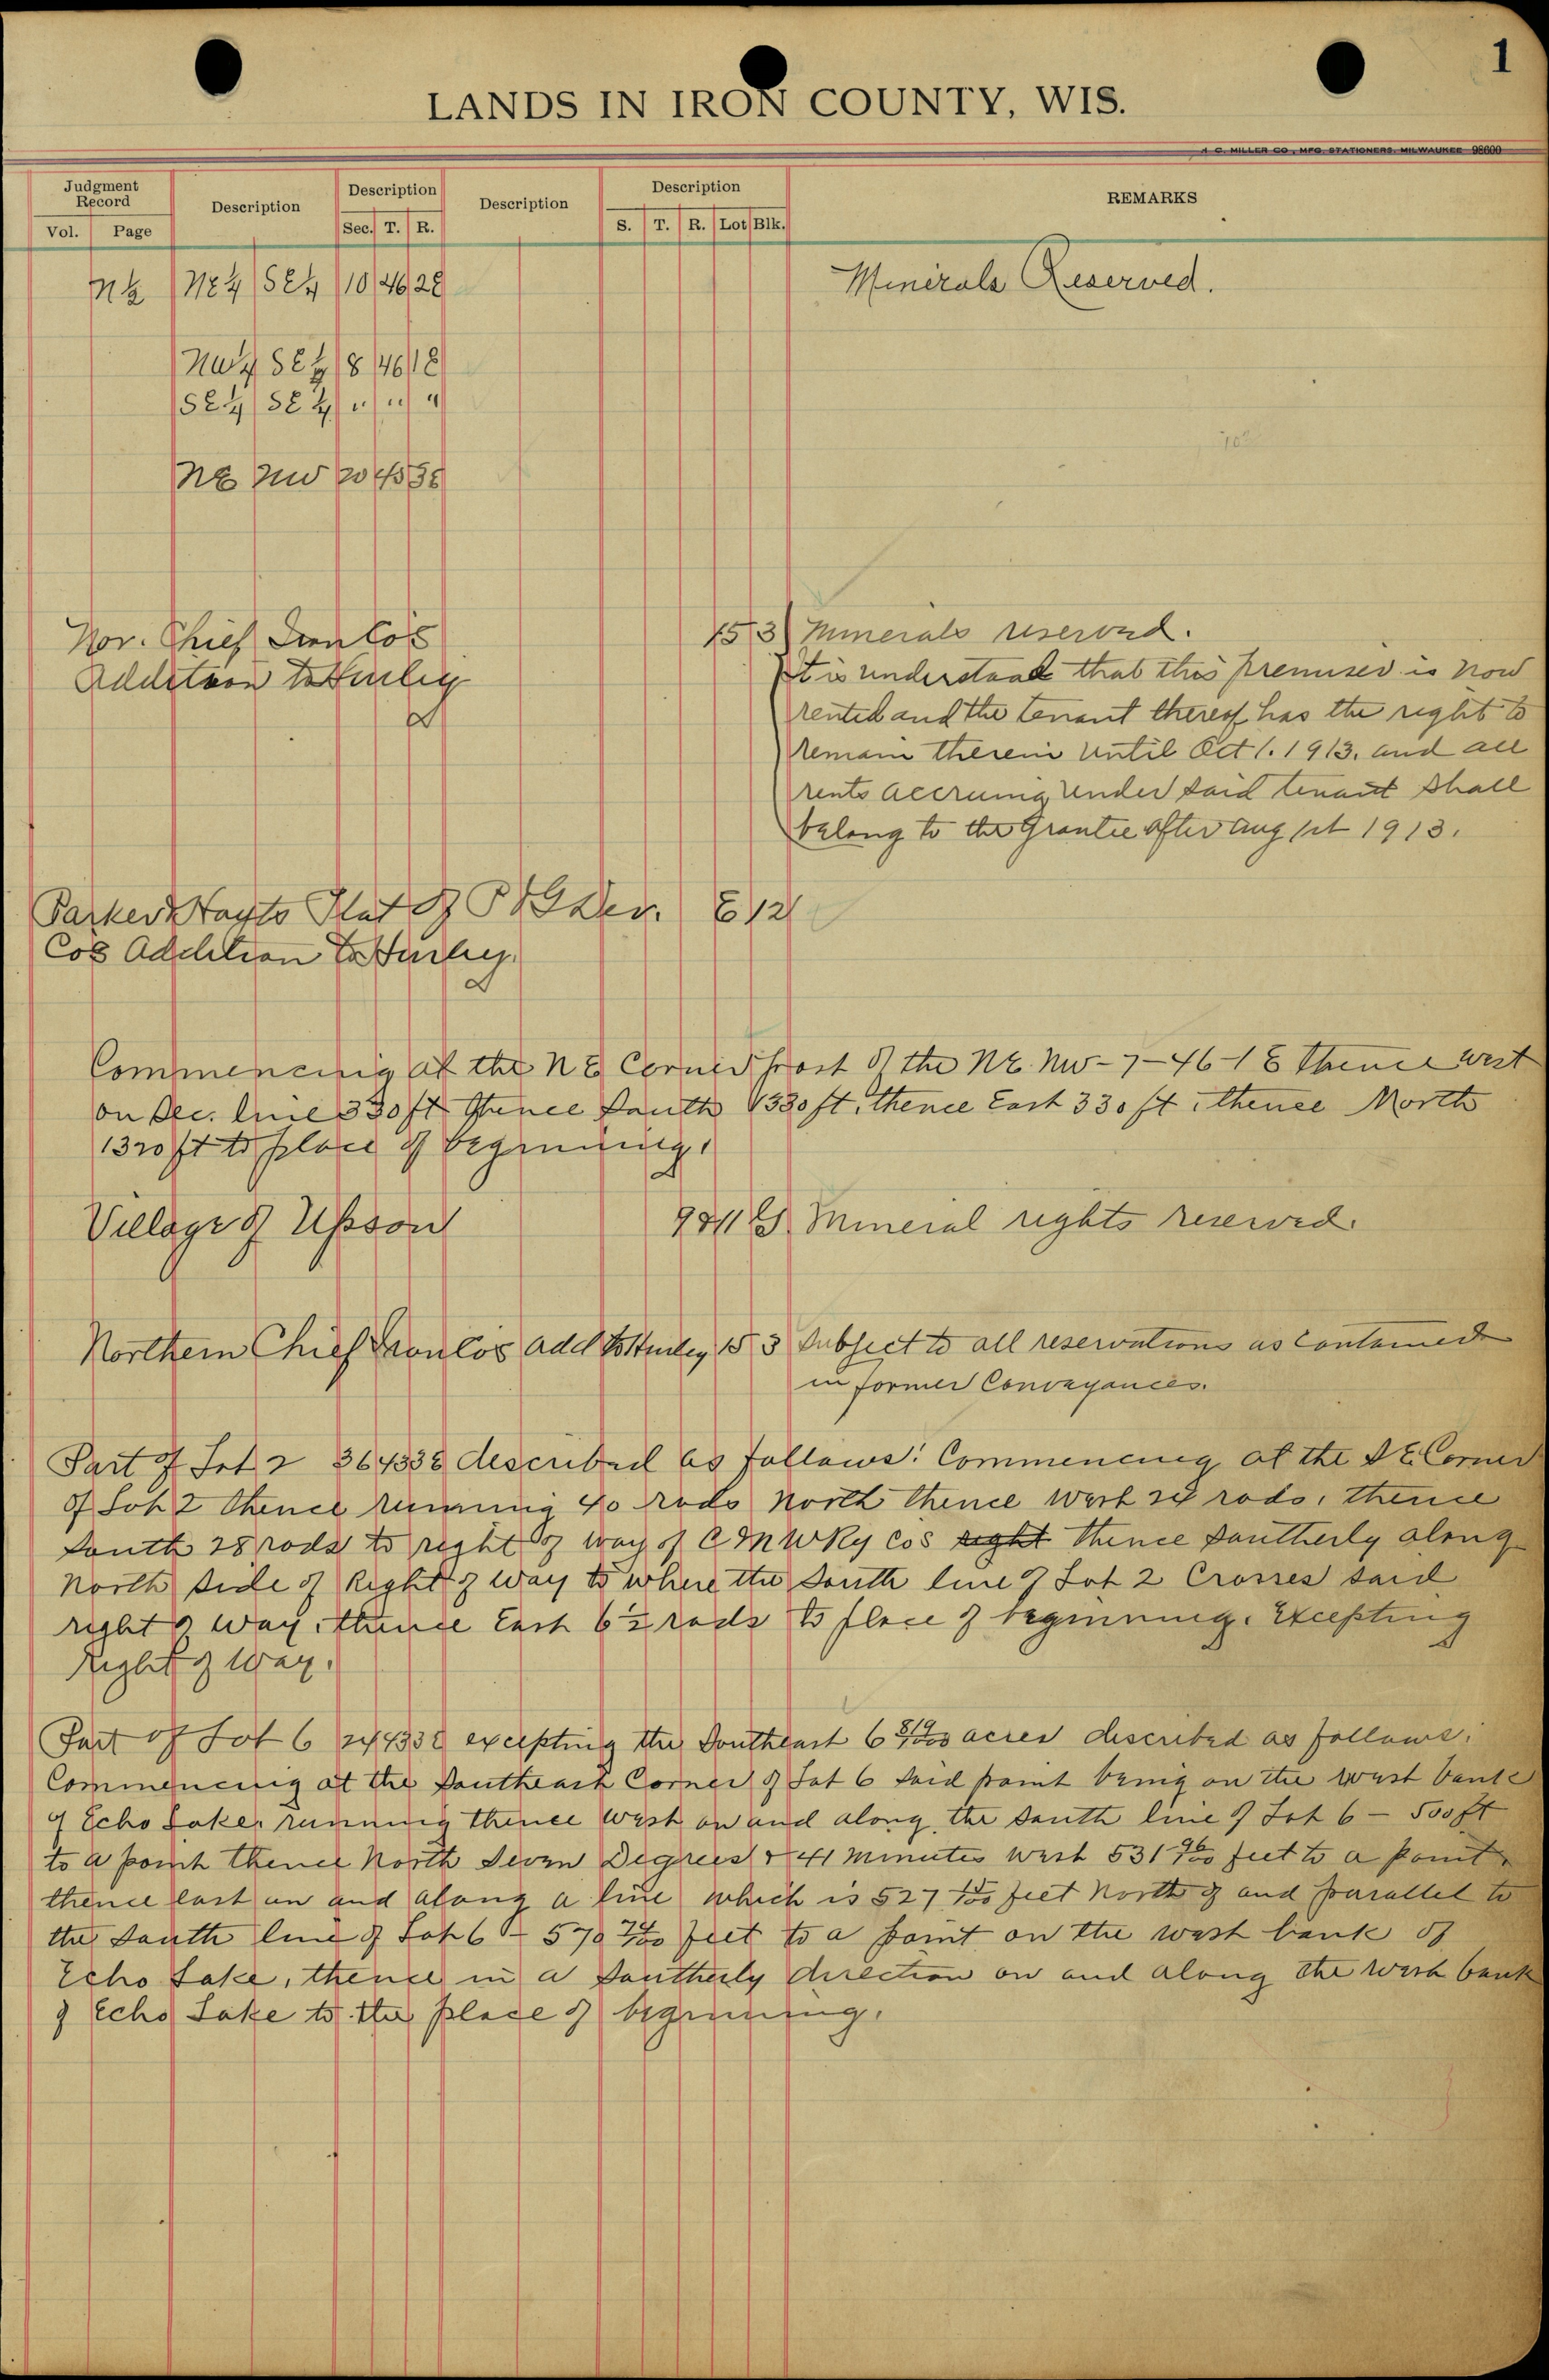 1
LANDS IN IRON COUNTY, WIS.
H. C. MILLER CO., MFG. STATIONERS, MILWAUKEE 98600
Judgment Record Description Description Description Description REMARKS
Vol. Page Sec. T. R. S. T. R. Lot Blk.
N½ NE4 SE4 10 46 2E Minerals Reserved.
NW4 SE4 8 46 1E
SE4 SE4 " " "
NE NW 20 45 3E
Nor. Chief Iron Co's 15 3 Minerals reserved.
Addition to Hurley
It is understood that this premises is now
rented and the tenant thereof has the right to
remain therein until Oct 1. 1913. and all
rents accruing under said tenant shall
belong to the Grantee after Aug 1st 1913.
Parker & Hayts Plat of Dev. 6 12
Co's Addition to Hurley
Commencing at the NE Corner post of the NE. NW-7-46-1E Thence West
on Sec. line 330 ft Thence South 1320 ft, thence East 330 ft, thence North
1320 ft to place of beginning.
Village of Upson 9 Mineral rights reserved.
Northern Chief Iron Co's Add to Hurley 15 3 Subject to all reservations as contained
in former Conveyances.
Part of Lot 2 36 43 3E described as follows: Commencing at the SE Corner
of Lot 2 thence running 40 rods North thence West rods, thence
South 28 rods to right of way of C&NW Ry Co's right thence Southerly along
North side of Right of way to where the South line of Lot 2 Crosses said
right of way, thence East 6½ rods to place of beginning. Excepting
Right of Way.
Part of Lot 6 24 43 3E excepting the Southeast 6 acres described as follows:
Commencing at the Southeast Corner of Lot 6 said point being on the west bank
of Echo Lake, running thence West on and along the South line of Lot 6 - 500 ft
to a point thence North Seven Degrees & 41 minutes West 531 feet to a point,
thence East on and along a line which is 527 feet North of and parallel to
the South line of Lot 6 - 570 feet to a point on the west bank of
Echo Lake, thence in a Southerly direction on and along the West bank
of Echo Lake to the place of beginning.